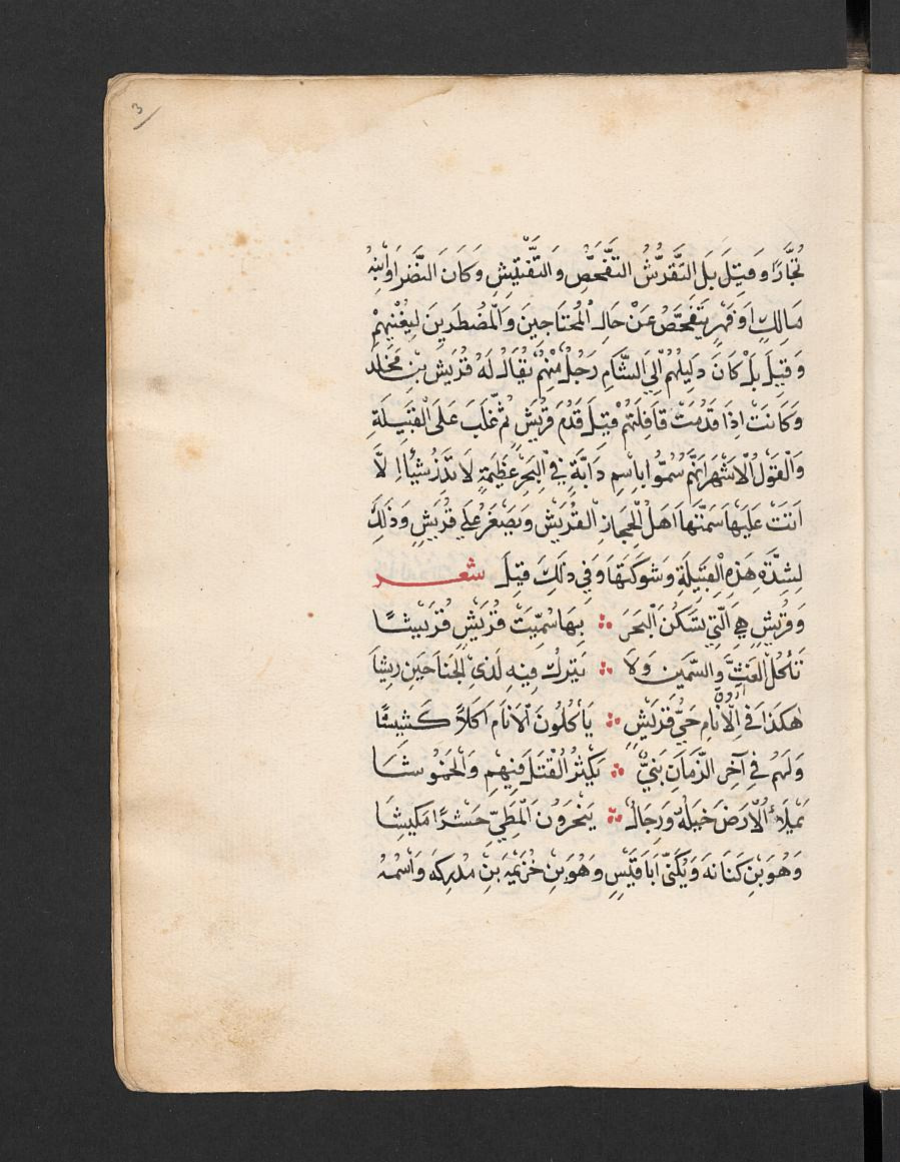 3
تُجَّارًا وَقِيلَ بَلِ التَّقَرُّشُ التَّفَحُّصُ وَالتَّفْتِيشِ وَكَانَ النَّضْرُ اَوْ ابْنِهُ
مَالِكٍ اَوْ فَهْرٍ يَتَفَحَّصُ عَنْ حَالِ الْمُحْتَاجِينَ وَالْمُضْطَرِينَ لِيُغْنِيهِمْ
وَقِيلَ بَلْ كَانَ دَلِيلُهُمْ اِلَي الشَّامِ رَجُلٌ مِّنْهُمْ يُقَالُ لَهُ قُرَيش بْنِ مَخْلَد
وَكَانَتْ اِذَا قَدُمَتْ قَافِلَتُهُمْ قِيلَ قَدُمَ قُرَيش ثُمَّ غَلَبَ عَلَى الْقَبِيلَةِ
وَالْقَوْلُ الْاَشْهَرَ اَنَّهُمْ سُمُّوا بِاسِمِ دَابَّةٍ فِي الْبَحْرِ عَظِيمَةٍ لَا تَذَرُ شَيْأً اِلَّا
اَتَتْ عَلَيْهَا سَمَّتْهَا اَهْلُ الْحِجَازِ الْقُرَيْشِ وَيَصْغَرُ عَلَي قُرَيْشٍ وَذَلِكَ
لِشِدَّةِ هَذِهِ الْقَبِيلَةِ وَشَوْكَتِهَا وَفِي ذَلِكَ قِيلَ شعر
وَقُرَيْشٍ هِيَ الَّتِي تَسْكُنُ الْبَحْرَ ∴ بِهَا سُمِّيَتْ قُرَيْشٍ قُرَيْشًا
تَأكُلُ الْغَثَّ وَالسَّمِينَ وَلَا ∴ تَتْرِكْ فِيهِ لَذِي الْجَنَاحَيْنِ رِيشَا
هٰكَذَا فِي الْاَنَامِ حَيُّ قُرَيْشٍ ∴ يَأكُلُونَ الْاَنَام اَكَلاً كَشِيشًا
وَلَهُمْ فِي آخِرِ الزَّمَانِ بَنِيٌّ ∴ يَكْثِرُ الْقَتْلَ فِيهِمِ وَالْخَمُوشَا
يَمْلَاءُ الْاَرْضَ خَيْلَهُ وَرِجَالٌ ∴ يَنْحَرُونَ الْمَطِيّ حَشْرًا مَكِيشَا
وَهُوَ بْنِ كِنَانَهَ وَيُكَنَّى اَبَا قَيْسٍ وَهُوَ بْنِ خُزَيْمَهَ بْنِ مدْرِكَهَ وَاسْمُهُ